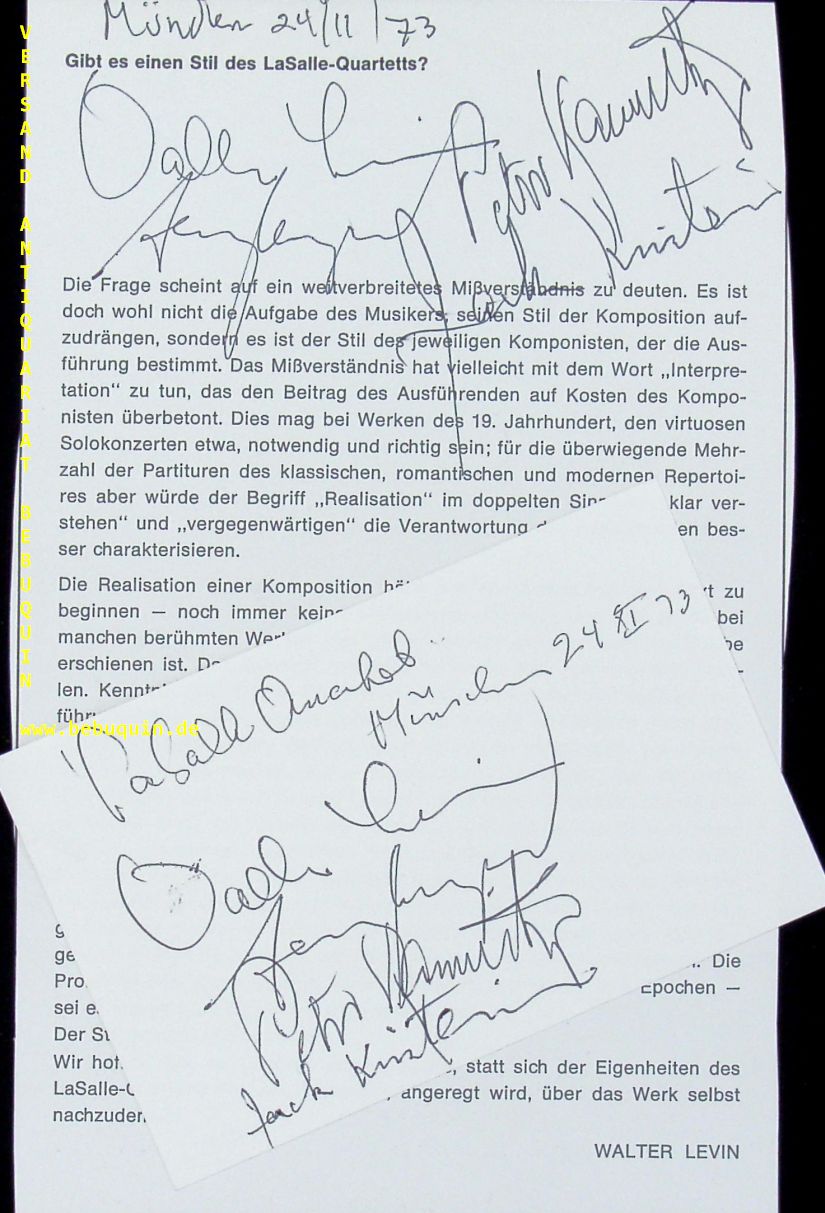 München 24/11/73
Gibt es einen Stil des LaSalle-Quartetts?
Walter Levin
Henry Meyer
Peter Kamnitzer
Jack Kirstein
Die Frage scheint auf ein weitverbreitetes Mißverständnis zu deuten. Es ist
doch wohl nicht die Aufgabe des Musikers, seinen Stil der Komposition auf-
zudrängen, sondern es ist der Stil des jeweiligen Komponisten, der die Aus-
führung bestimmt. Das Mißverständnis hat vielleicht mit dem Wort „Interpre-
tation“ zu tun, das den Beitrag des Ausführenden auf Kosten des Kompo-
nisten überbetont. Dies mag bei Werken des 19. Jahrhundert, den virtuosen
Solokonzerten etwa, notwendig und richtig sein; für die überwiegende Mehr-
zahl der Partituren des klassischen, romantischen und modernen Repertoi-
res aber würde der Begriff „Realisation“ im doppelten klar ver-
stehen“ und „vergegenwärtigen“ die Verantwortung en bes-
ser charakterisieren.
Die Realisation einer Komposition zu
beginnen — noch immer bei
manchen berühmten
erschienen ist.
len.
LaSalle Quartet
München 24 XI 73
Walter Levin
Henry Meyer
Peter Kamnitzer
Jack Kirstein
ge
Die
Pro
epochen —
sei
Der
Wir statt sich der Eigenheiten des
angeregt wird, über das Werk selbst
WALTER LEVIN
VERSAND ANTIQUARIAT BEBUQUIN
www.bebuquin.de